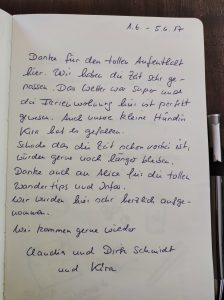 1.6 - 5.6.17
Danke für den tollen Aufenthalt
hier. Wir haben die Zeit sehr ge-
nossen. Das Wetter war super und
die Ferienwohnung hier ist perfekt
gewesen. Auch unsere kleine Hündin
Kira hat es gefallen.
Schade das die Zeit schon vorbei ist,
würden gerne noch länger bleiben.
Danke auch an Alice für die tollen
Wandertips und Infos.
Wir wurden hier sehr herzlich aufge-
nommen.
Wir kommen gerne wieder
Claudia und Dirk Schmidt
und Kira